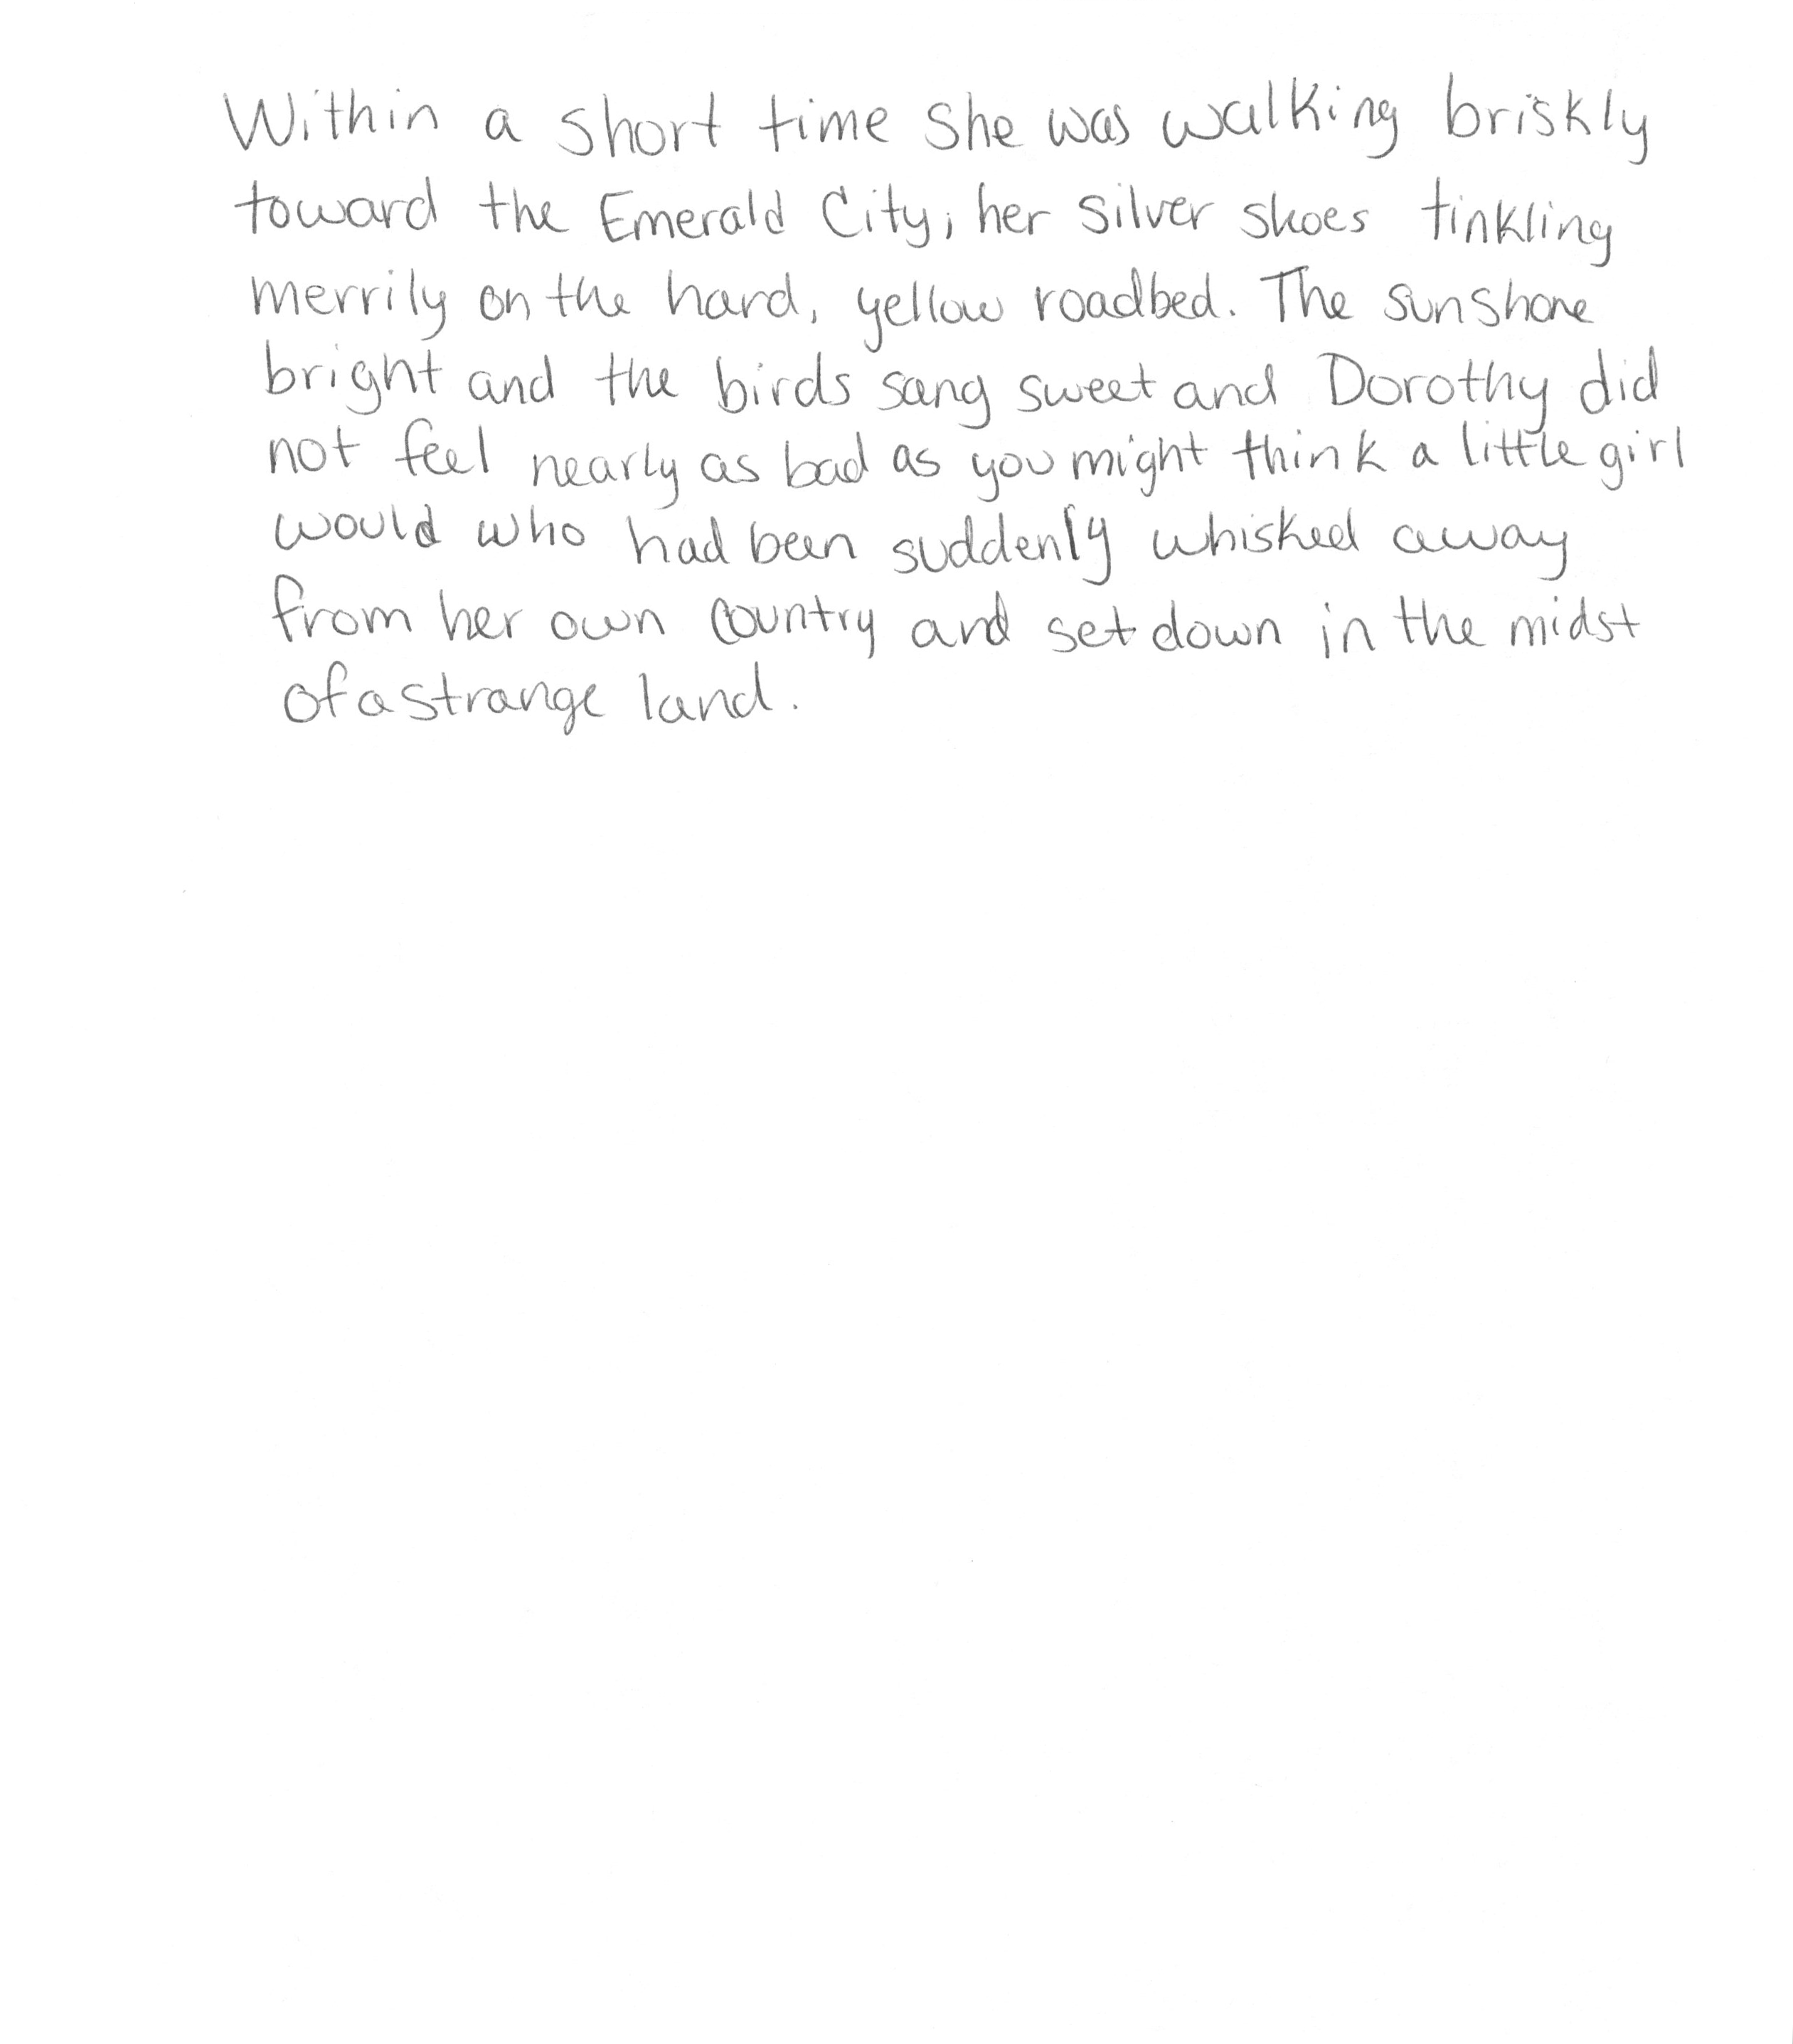 Within a short time she was walking briskly
toward the Emerald City, her silver shoes tinkling
merrily on the hard, yellow roadbed. The sun shone
bright and the birds sang sweet and Dorothy did
not feel nearly as bad as you might think a little girl
would who had been suddenly whisked away
from her own country and set down in the midst
of a strange land.